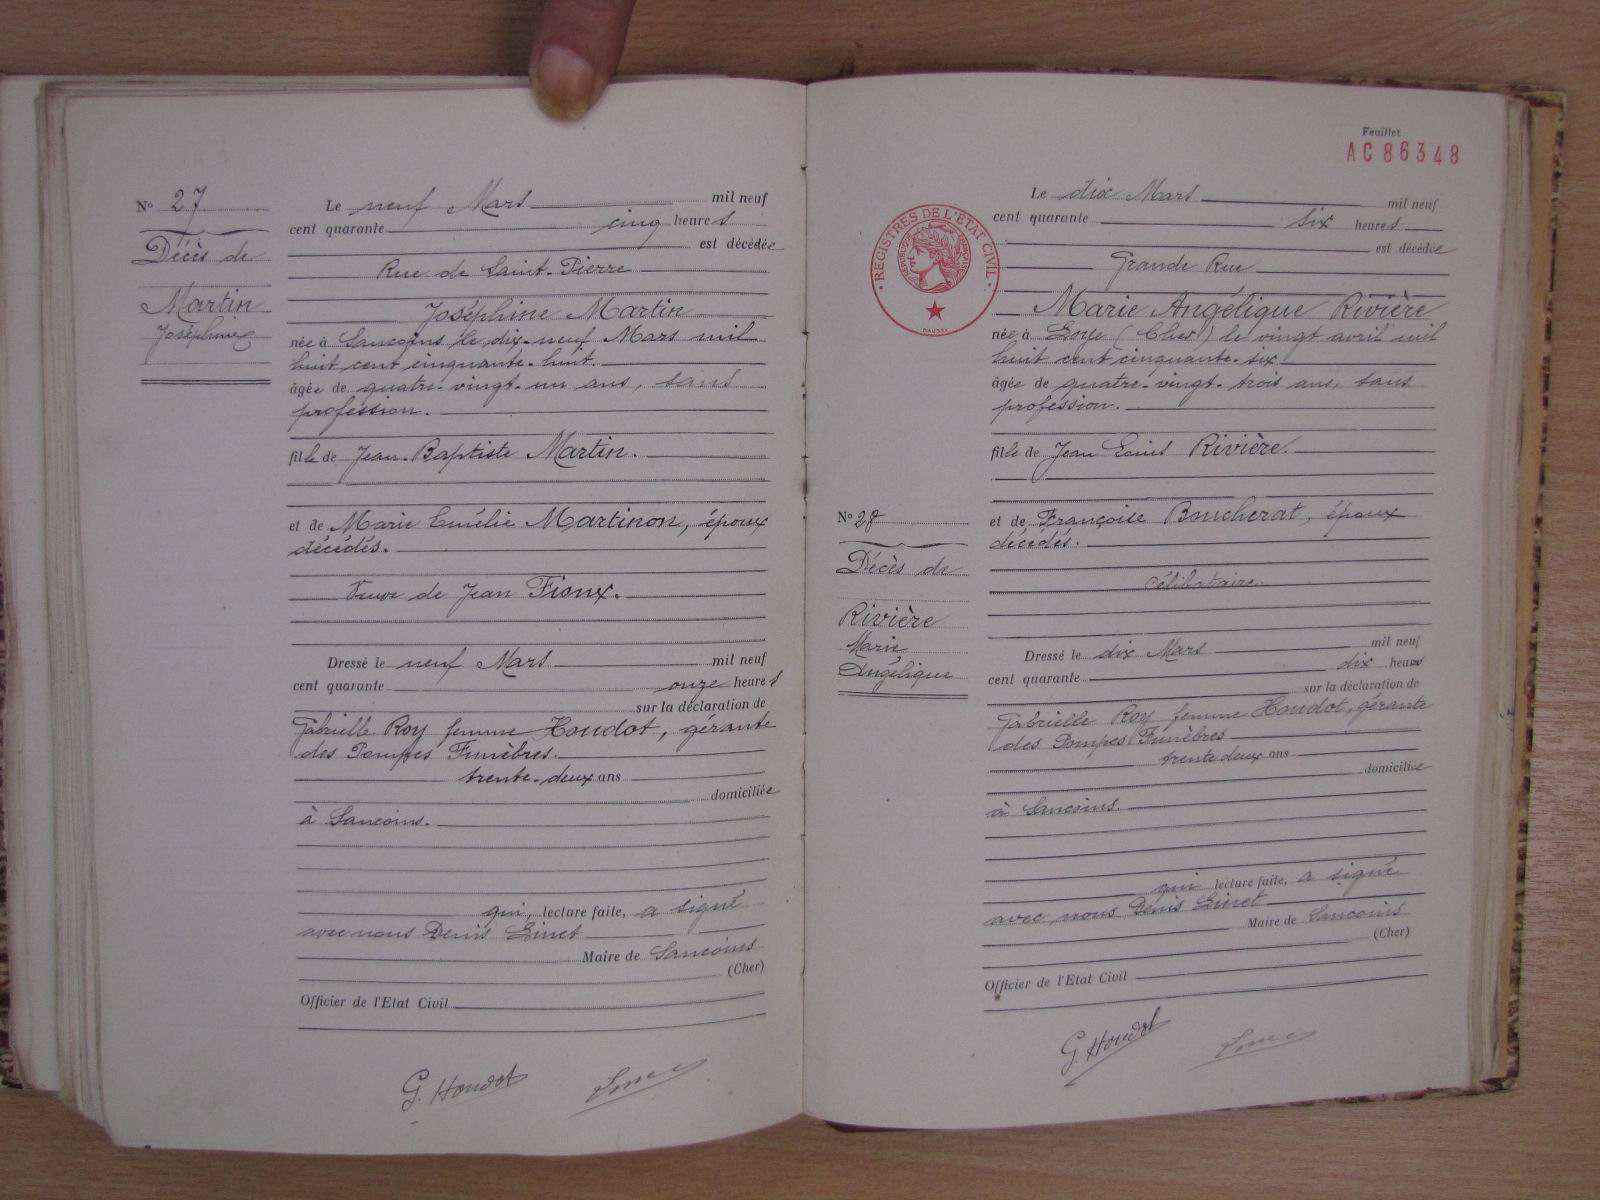 N° 27
Décès de
Martin
Joséphine
Le neuf Mars mil neuf
cent quarante cinq heures
est décédée
Rue de Saint-Pierre
Joséphine Martin
née à Sancoins le dix-neuf Mars mil
huit cent cinquante-huit.
âgée de quatre-vingt-un ans, sans
profession.
fille de Jean-Baptiste Martin.
et de Marie Emélie Martinon, époux
décédés.
Veuve de Jean Fioux.
Dressé le neuf Mars mil neuf
cent quarante onze heures
sur la déclaration de
Gabrielle Roy femme Houdot, gérante
des Pompes Funèbres.
trente-deux ans
domiciliée
à Sancoins.
qui, lecture faite, a signé
avec nous Denis Ginet
Maire de Sancoins
(Cher)
Officier de l'Etat Civil
G. Houdot
Feuillet
AC 86348
REGISTRES DE L'ETAT CIVIL
REPUBLIQUE FRANÇAISE
N° 28
Décès de
Rivière
Marie
Angélique
Le dix Mars mil neuf
cent quarante six heures
est décédée
Grande Rue
Marie Angélique Rivière
née à Loye (Cher) le vingt avril mil
huit cent cinquante-six
âgée de quatre-vingt-trois ans, sans
profession.
fille de Jean Louis Rivière.
et de Françoise Boucherat, époux
décédés.
célibataire.
Dressé le dix Mars mil neuf
cent quarante dix heures
sur la déclaration de
Gabrielle Roy femme Houdot, gérante
des Pompes Funèbres
trente deux ans
domiciliée
à Sancoins.
qui lecture faite, a signé
avec nous Denis Ginet
Maire de Sancoins
(Cher)
Officier de l'Etat Civil
G. Houdot